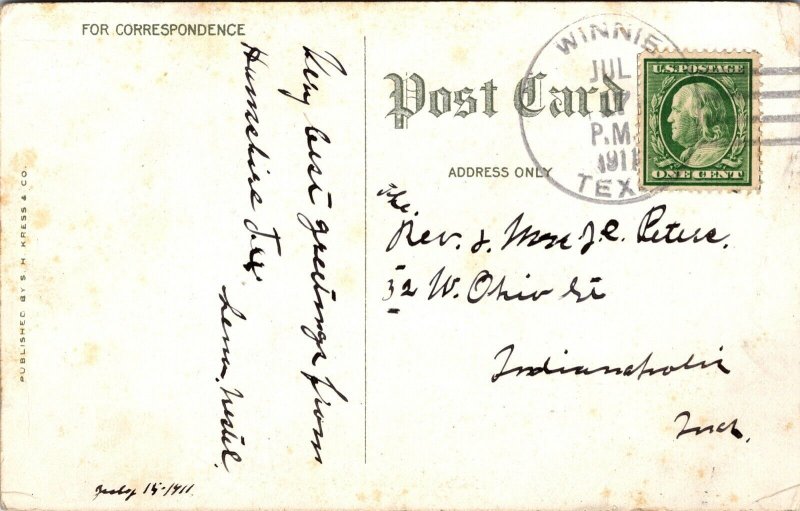 FOR CORRESPONDENCE
Very best greetings from
Hamshire Tex
Post Card
ADDRESS ONLY
WINNIE
JUL
P.M.
1911
TEX
U.S. POSTAGE
ONE CENT
The
Rev. J. C. Peters.
32 W. Ohio St
Indianapolis
Ind.
PUBLISHED BY S. H. KRESS & CO.
15-1911